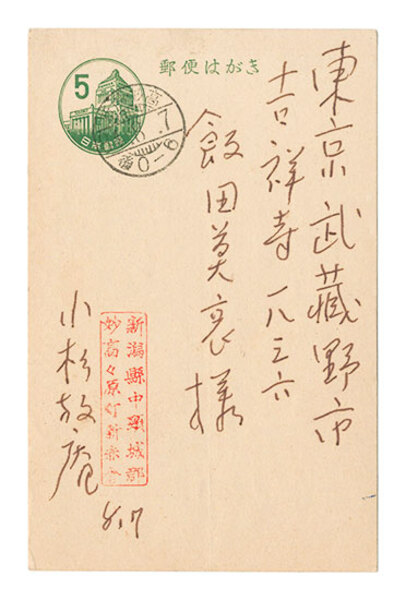 郵便はがき
5
日本郵便
東京武藏野市
吉祥寺一八三六
飯田莫哀様
新潟縣中頸城郡
妙高々原町新赤倉
小杉放庵
8.7